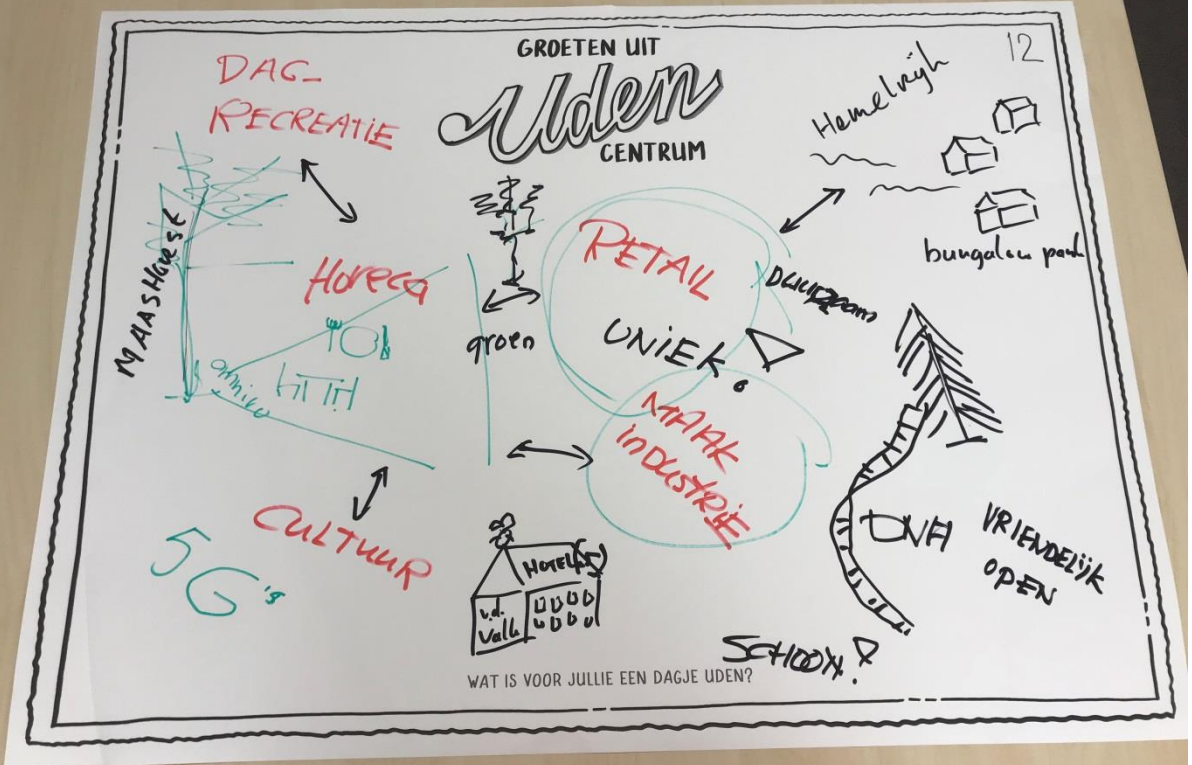 GROETEN UIT
Uden
CENTRUM
12
DAG-
RECREATIE
Hemelrijk
MAASHORST
Horeca
groen
RETAIL
UNIEK.
Duurzaam
bungalow park
MAAK
INDUSTRIE
CULTUUR
5 G's
HOTEL(S)
v.d.
Valk
DNA
VRIENDELIJK
OPEN
SCHOON!
WAT IS VOOR JULLIE EEN DAGJE UDEN?